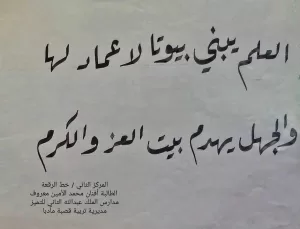 العلم يبني بيوتا لا عماد لها
والجهل يهدم بيت العز والكرم
المركز الثاني / خط الرقعة
الطالبة أفنان محمد الأمين معروف
مدارس الملك عبدالله الثاني للتميز
مديرية تربية قصبة مادبا